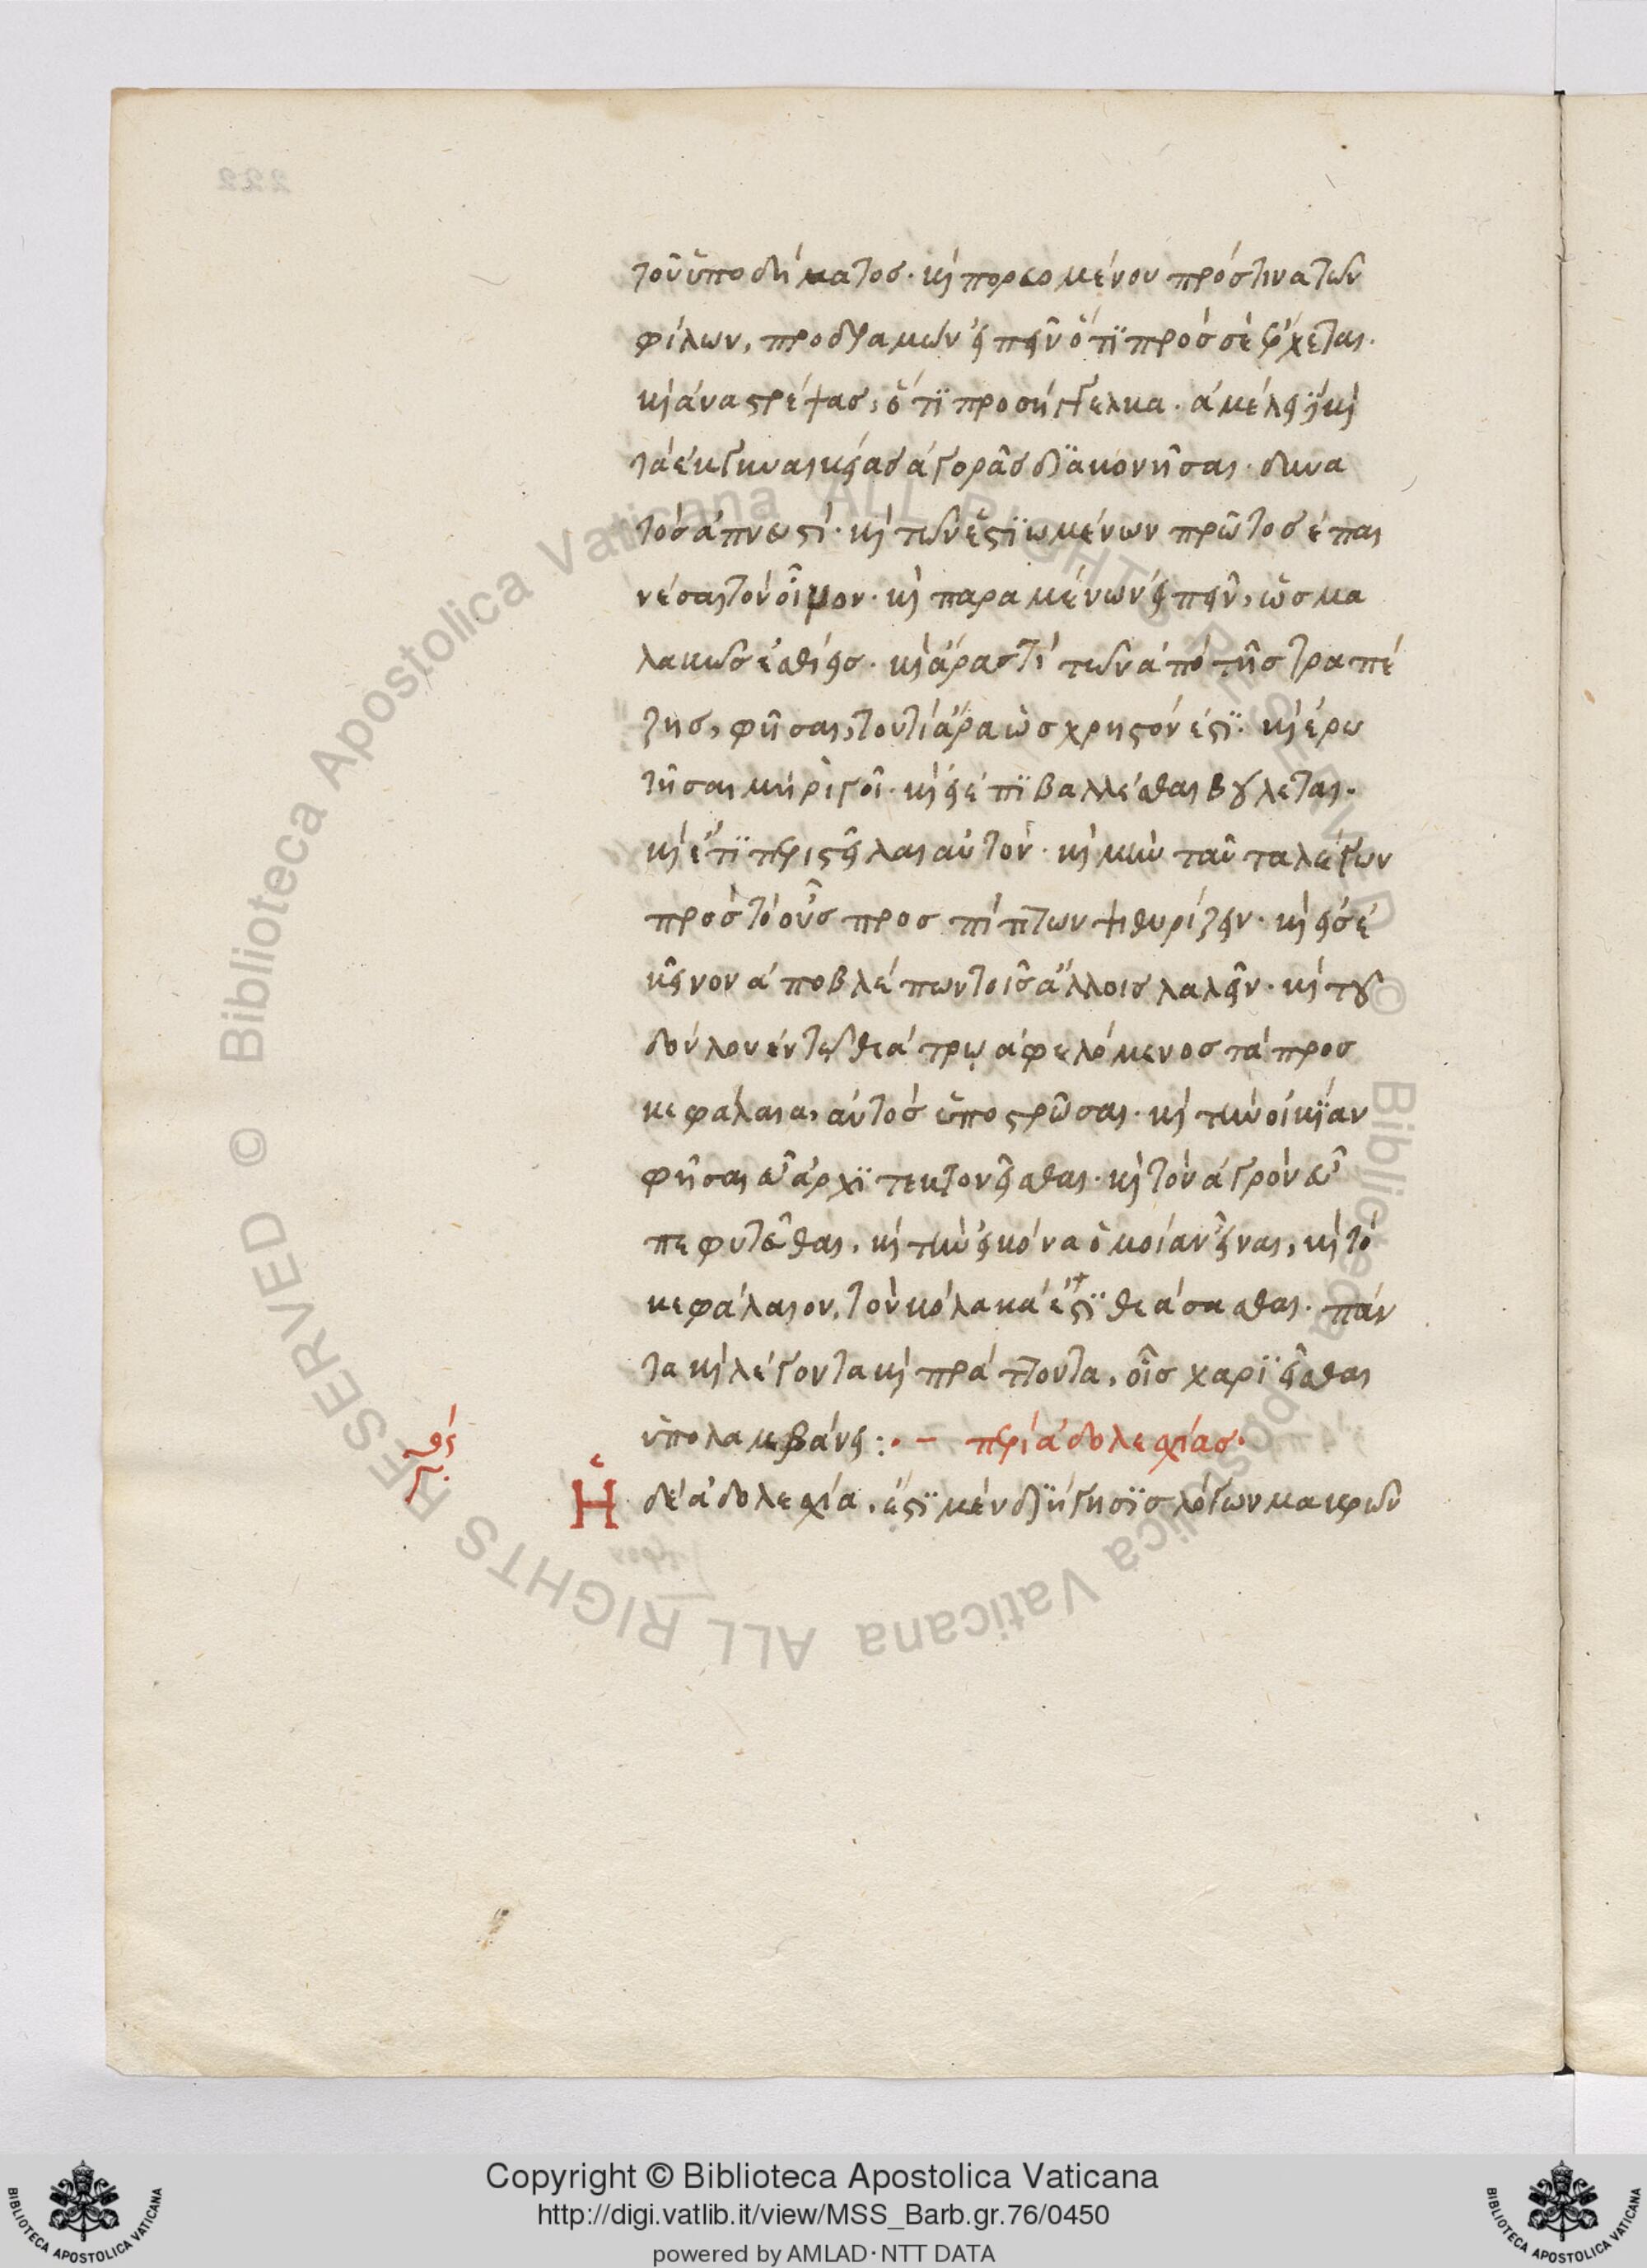 222
τοῦ ὑποδήματος· καὶ πορευομένου πρός τινα τῶν
φίλων, προδραμὼν εἰπεῖν ὅτι πρὸς σὲ ἔρχεται·
καὶ ἀναστρέψας, ὅτι προσήγγελκα· ἀμέλει καὶ
τὰ ἐκ γυναικείας ἀγορᾶς διακονῆσαι· δυνα
τὸς ἀπνευστί· καὶ τῶν ἑστιωμένων πρῶτος ἐπαι
νέσαι τὸν οἶμον· καὶ παραμένων εἰπεῖν, ὡς μα
λακῶς ἐσθίεις· καὶ ἄρας τὶ τῶν ἀπὸ τῆς τραπέ
ζης, φῆσαι, τουτὶ ἄρα ὡς χρηστόν ἐστι· καὶ ἐρω
τῆσαι μὴ ῥιγοῖ· καὶ εἰ ἐπιβαλλέσθαι βούλεται·
καὶ ἔτι περιστεῖλαι αὐτόν· καὶ μὴν ταῦτα λέγων
πρὸς τὸ οὖς προσπίπτων ψιθυρίζειν· καὶ εἰς ἐ
κεῖνον ἀποβλέπων τοῖς ἄλλοις λαλεῖν· καὶ τοῦ
δούλου ἐν τῷ θεάτρῳ ἀφελόμενος τὰ προσ
κεφάλαια, αὐτὸς ὑποστρῶσαι· καὶ τὴν οἰκίαν
φῆσαι εὖ ἀρχιτεκτονεῖσθαι· καὶ τὸν ἀγρὸν εὖ
πεφυτεῦσθαι, καὶ τὴν εἰκόνα ὁμοίαν εἶναι, καὶ τὸ
κεφάλαιον, τὸν κόλακα ἔστι θεάσασθαι· πάν
τα καὶ λέγοντα καὶ πράττοντα, οἷς χαριεῖσθαι
ὑπολαμβάνει :· – περὶ ἀδολεσχίας·
γ·
Ἡ δὲ ἀδολεσχία, ἐστὶ μὲν διήγησις λόγων μακρῶν
Biblioteca Apostolica Vaticana ALL RIGHTS RESERVED © Biblioteca Apostolica Vaticana ALL RIGHTS RESERVED ©
Copyright © Biblioteca Apostolica Vaticana
http://digi.vatlib.it/view/MSS_Barb.gr.76/0450
powered by AMLAD·NTT DATA
BIBLIOTECA APOSTOLICA VATICANA
BIBLIOTECA APOSTOLICA VATICANA